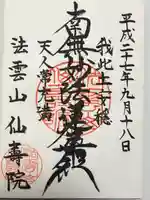 平成二十七年九月十八日
我此土安穏
南無妙法蓮華経
天人常充満
法雲山仙寿院